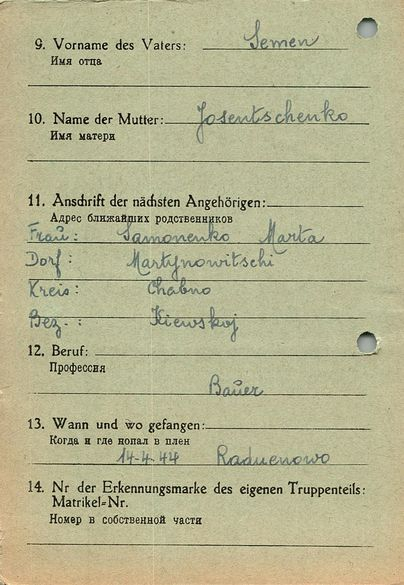 9. Vorname des Vaters: Semen
Имя отца
10. Name der Mutter: Josentschenko
Имя матери
11. Anschrift der nächsten Angehörigen:
Адрес ближайших родственников
Frau: Samonenko Marta
Dorf: Martynowitschi
Kreis: Chabno
Bez.: Kiewskoj
12. Beruf:
Профессия
Bauer
13. Wann und wo gefangen:
Когда и где попал в плен
14.4.44 Raduenowo
14. Nr der Erkennungsmarke des eigenen Truppenteils:
Matrikel=Nr.
Номер в собственной части